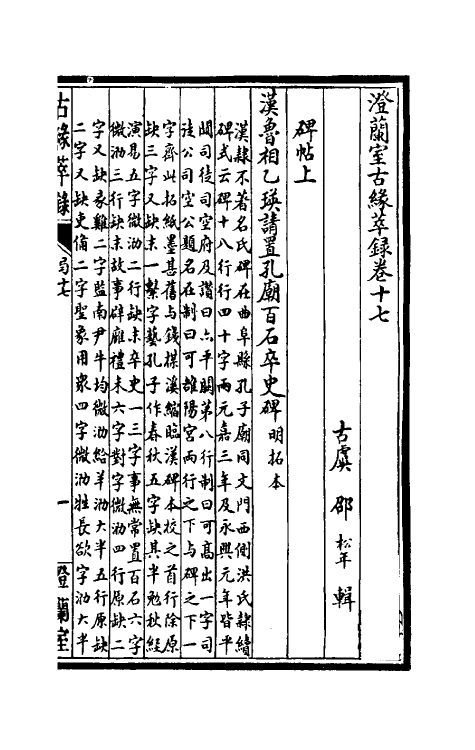 澄蘭室古緣萃錄卷十七
古虞 邵松年 輯
碑帖上
漢魯相乙瑛請置孔廟百石卒史碑 明拓本
漢隸不著名氏碑在曲阜縣孔子廟同文門西側洪氏隸續
碑式云碑十八行行四十字兩元嘉三年及永興元年皆平
闕司徒司空府及讚曰六平闕第八行制曰可高出一字司
徒公司空公題名在制曰可雒陽宮兩行之下與碑之下一
字齊此拓紙墨甚舊與錢楳溪縮臨漢碑本校之首行除原
缺三字又缺末一繫字藝孔子作春秋五字缺其半勉秋經
演易五字微泐二行缺末卒史一三字事無常置百石六字
微泐三行缺末故事辟廱禮未六字對字微泐四行原缺二
字又缺豕雞二字監南尹牛均微泐給羊泐大半五行原缺
二字又缺吏備二字聖象用眾四字微泐牲長欲字泐大半
古緣萃錄 局十七 一 澄蘭室